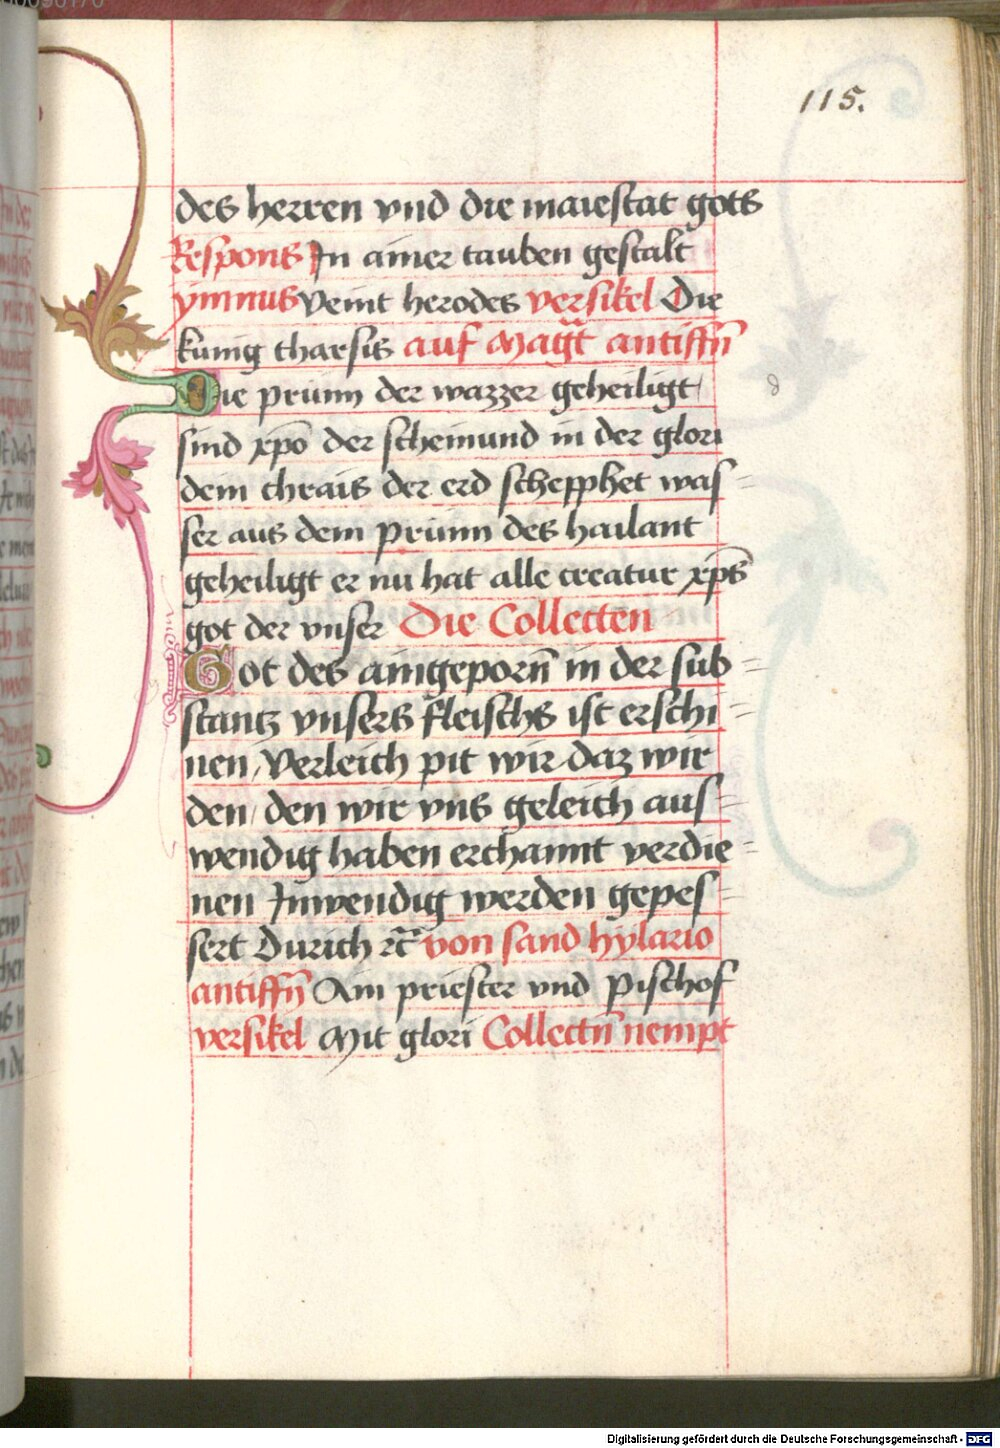 115.
des herren vnd die maiestat gots
Respons In ainer tauben gestalt
ymnus Veint herodes versikel Die
kunig tharsis auf Magt̄ antiffn̄
Die prunn der wazzer geheiligt
sind xp̄o der scheinund in der glori
dem chrais der erd schepphet was=
ser aus dem prunn des hailant
geheiligt er nu hat alle creatur xp̄s
got der vnser Die Collecten
Got des aingeporn̄ in der sub=
stantz vnsers fleischs ist erschi=
nen, Verleich pit wir daz wir
den, den wir vns geleich aus=
wendig haben erchannt verdie=
nen Inwendig werden gepes=
sert Durich ꝛc̄ von sand hylario
antiffn̄ Am priester vnd Pischof
versikel Mit glori Collectn̄ nempt
Digitalisierung gefördert durch die Deutsche Forschungsgemeinschaft - DFG